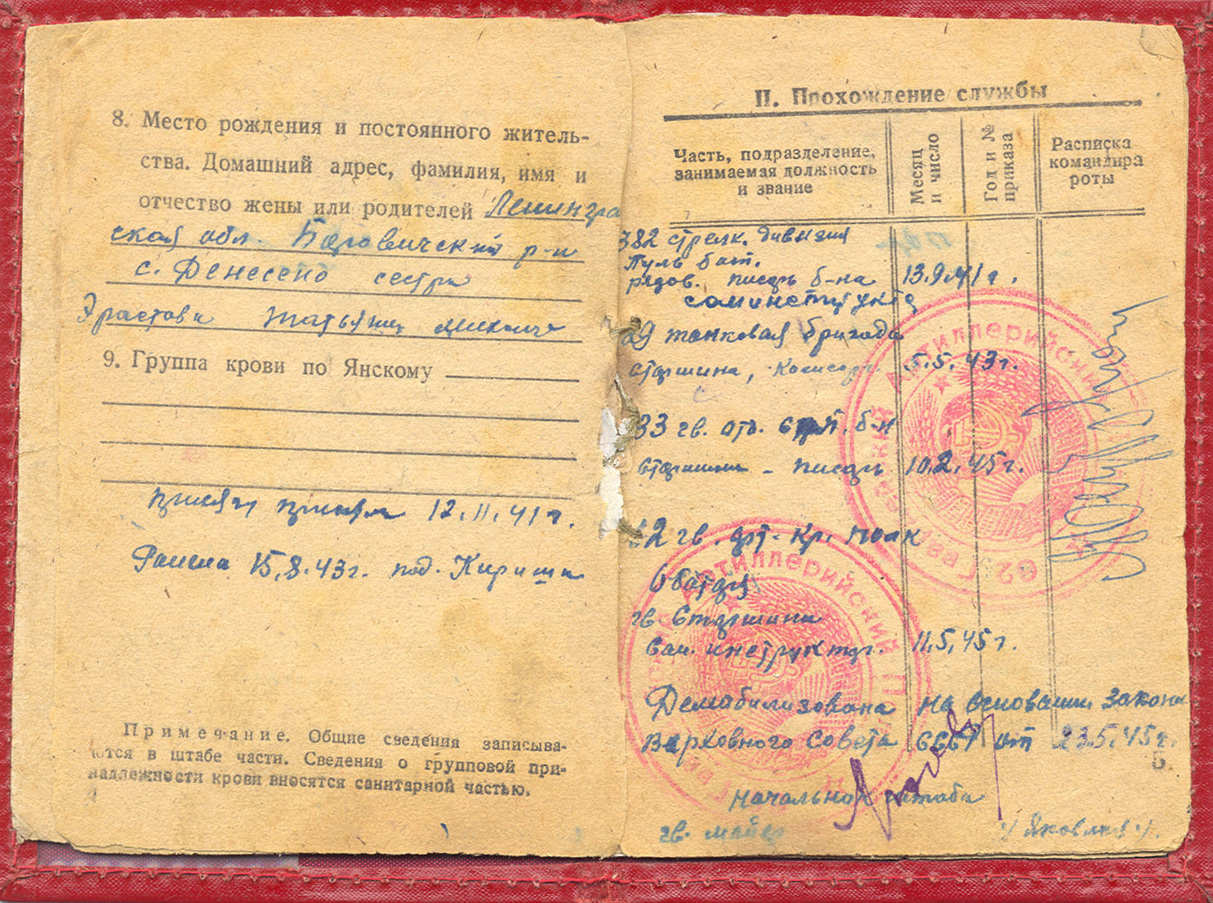 8. Место рождения и постоянного житель-
ства. Домашний адрес, фамилия, имя и
отчество жены или родителей Ленингра
ская обл. Боровический р-н
с. Денесено сестра
Эрастова Татьяна
9. Группа крови по Янскому
принял 12.11.41г.
Ранена 15.8.43г. под. Кириши
Примечание. Общие сведения записыва-
ются в штабе части. Сведения о групповой при-
надлежности крови вносятся санитарной частью.
II. Прохождение службы
Часть, подразделение,
занимаемая должность
и звание
Месяц
и число
Год и №
приказа
Расписка
командира
роты
382 стрелк. дивизия
Пуль бат.
рядов. писарь б-на 13.9.41г.
санинструктор
29 танковая бригада
старшина, 5.5.43г.
33 гв. отд. б-н
старшина - писарь 10.2.45г.
62 гв. арт. кр. полк
6 батарея
гв. старшина
сан. инструктор. 11.5.45г.
Демабилизована на основании закона
Верховного Совета от 23.5.45г.
Начальник штаба
гв. майор /Яковлев/.
62 Гвардейский Артиллерийский
Артиллерийский